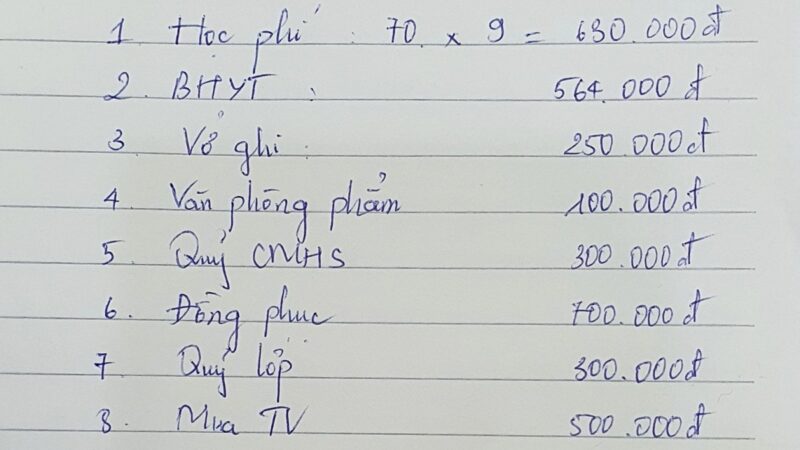 1 Học phí : 70. x 9 = 630.000đ
2. BHYT : 564.000đ
3 Vở ghi : 250.000đ
4. Văn phòng phẩm 100.000đ
5 Quỹ CMHS 300.000đ
6. Đồng phục 700.000đ
7 Quỹ lớp 300.000đ
8. Mua TV 500.000đ